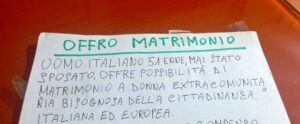 OFFRO MATRIMONIO
UOMO ITALIANO 51 ENNE, MAI STATO
SPOSATO, OFFRE POSSIBILITÀ DI
MATRIMONIO A DONNA EXTRACOMUNITA
RIA BISOGNOSA DELLA CITTADINANZA
ITALIANA ED EUROPEA.